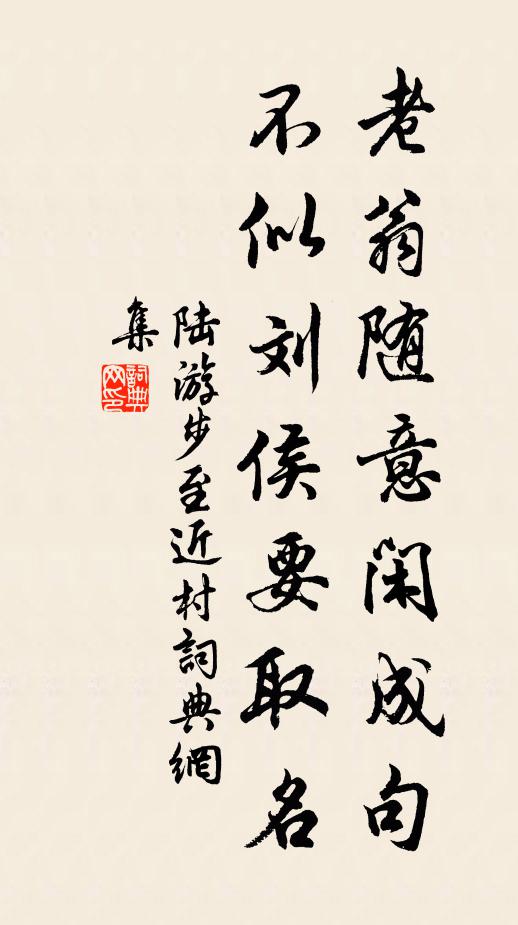 老翁随意闲成句
不似刘侯要取名
陆游步至近村詞典網
集
詞典
网印